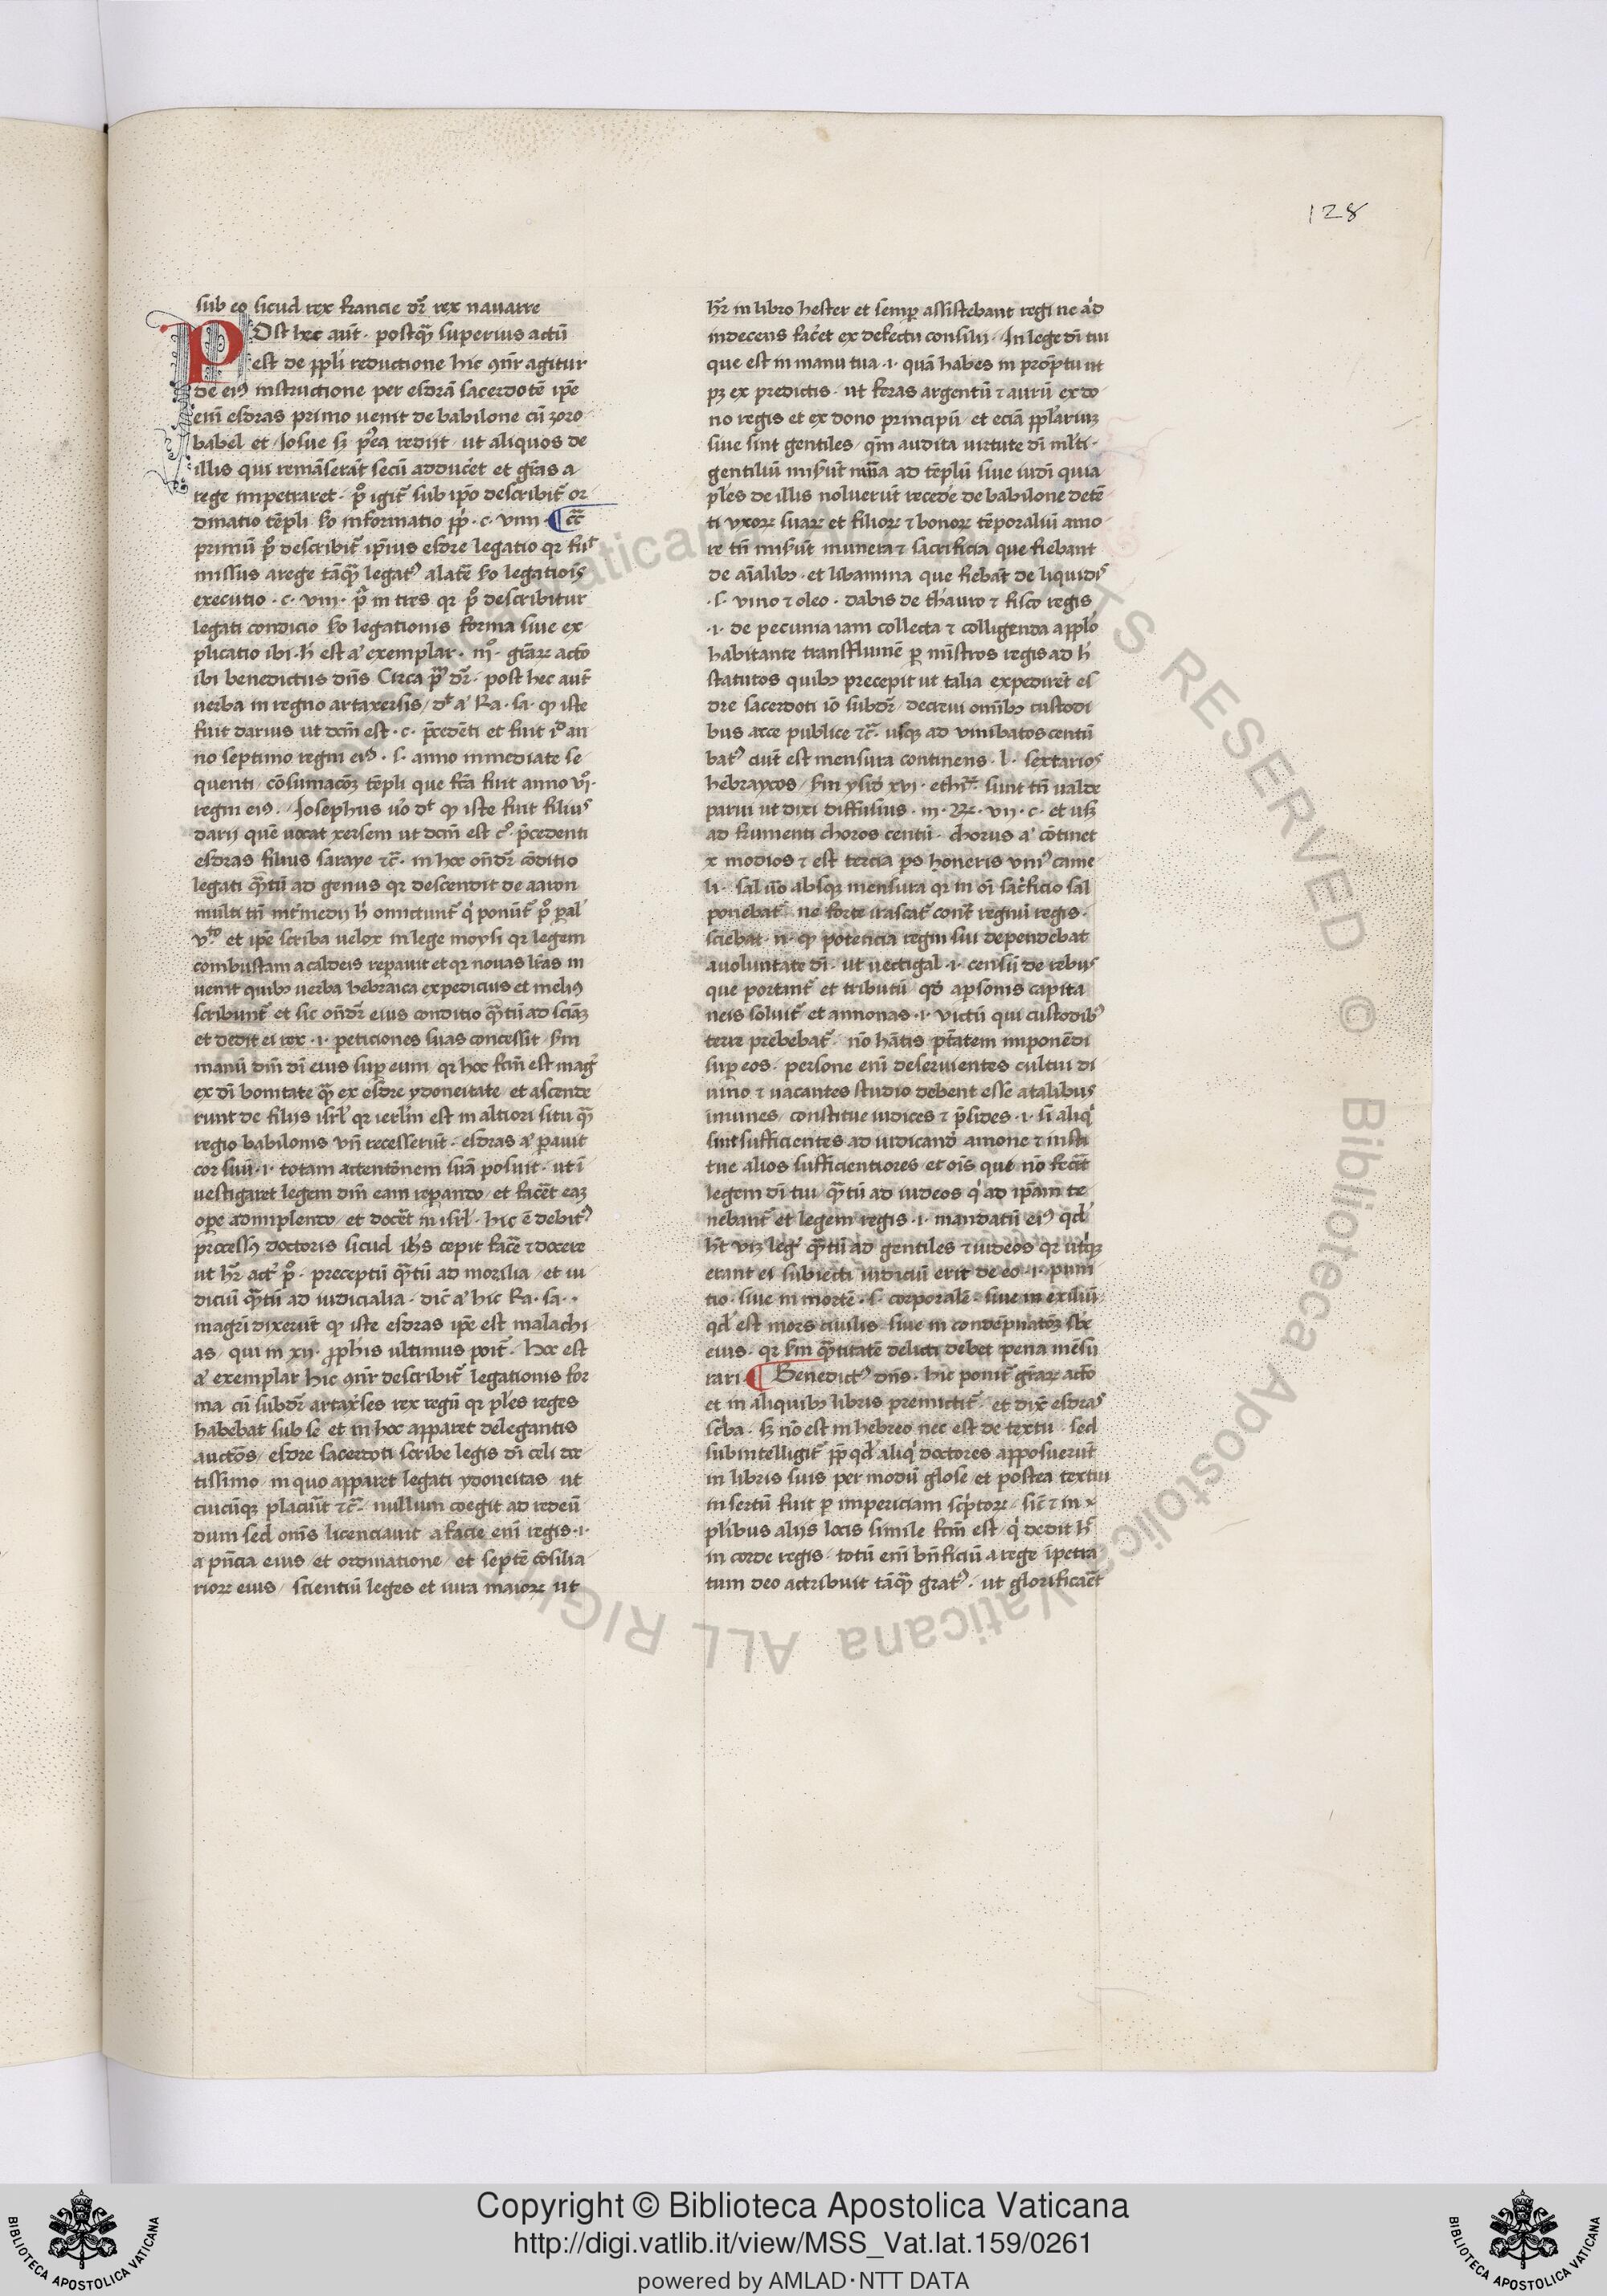 128
sub eo sicud rex francie dr̄ rex nauarre
POst hec aūt · postq̄ʒ superius actū
est de ppl̄i reductione hic ꝯn̄r agitur
de eiꝰ instructione per esdrā sacerdotē ip̄e
eni᷒ esdras primo uenit de babilone cū zoro
babel et Iosue sʒ p̄ea redijt ut aliquos de
illis qui remāserāt secū adduc̄et et gr̄as a
rege impetraret · pͦ igit᷑ sub ip̄o describit᷑ or
dinatio tēpli ẜo informatio pp̄ · c · viiii · ¶ Cͣ
primū pͦ describit᷑ ip̄ius esdre legatio qr fuit
missus a rege tāq̄ʒ legatꝰ a latē ẜo legatiōis
executio · c · viii · pͣ in tres qr pͦ describitur
legati condicio ẜo legationis forma siue ex
plicatio ibi · h̄ est aͥ exemplar · iijͦ · gr̄aꝝ actō
ibi benedictus dn̄s Circa pͫ dr̄ · post hec aūt
uerba in regno artaxersis / dͭ aͥ Ra · sa · ꝙ iste
fuit darius ut dc̄m est · c · p̄cedēti et fuit iͩ an
no septimo regni eiꝰ · s · anno inmediate se
quenti / cōsumacōʒ tēpli que fc̄a fuit anno vjͦ ·
regni eiꝰ · Josephus u̇o dͭ ꝙ iste fuit filius
darij quē uocat xersem ut dc̄m est cͦ · p̄cedenti
esdras filius saraye ⁊c̄ · in hoc on̄dr̄ cōditio
legati q̄ʒtū ad genus qr descendit de aaron
multi tn̄ int̄medij h̄ omictunt᷑ qͥ ponūt᷑ pͦ pal᷒
vͭͦ et ip̄e scriba uelox in lege moysi qr legem
combustam a caldeis repauit et qr nouas lr̄as in
uenit quibꝰ uerba hebraica expedicius et meliꝰ
scribunt᷑ et sic on̄dr̄ eius conditio q̄ʒtū ad sciāʒ
et dedit ei rex · i · peticiones suas concessit / ẜm
manū dn̄i di᷒ eius sup eum / qr hoc fc̄m est magͥ
ex di᷒ bonitate q̄ʒ ex esdre ydoneitate / et ascende
runt de filijs isrl̄ qr ierl̄m est in altiori situ q̄ʒ
regio babilonis vn̄ recesserūt · esdras aͥ pauit
cor suū · i · totam actentōnem suā posuit · ut ī
uestigaret legem dn̄i eam repando / et fac̄et eaʒ
oꝑe adimplendo / et doc̄et in isrl̄ · hic ē debitꝰ
processꝰ doctoris sicud ihs̄ cepit fac̄e ⁊ docere
ut hr̄ actͥ pͦ · preceptū q̄ʒtū ad moralia / et iu
diciū q̄ʒtū ad iudicialia · dic̄ aͥ hic Ra · sa · ·
magri᷒ dixerūt ꝙ iste esdras ip̄e est malachi
as / qui in xij · ꝓphis ultimus poit᷑ · hoc est
aͥ exemplar hic ꝯn̄r describit᷑ legationis for
ma cū subdr̄ artax̄ses rex regū qr pl̄es reges
habebat sub se et in hoc apparet delegantis
auctōs / esdre sacerdoti scribe legis di᷒ celi doc
tissimo / in quo apparet legati ydoneitas ut
cuicūqʒ placūit ⁊c̄ · nullum coegit ad redeū
dum sed om̄s licenciauit a facie eni᷒ regis · i ·
a pn̄cia eius / et ordinatione / et septē cōsilia
rioꝝ eius / scientiū leges et iura maioꝝ ut
hr̄ in libro hester et semp assistebant regi ne aͥd
indecens fac̄et ex defectu consilij · In lege di᷒ tui
que est in manu tua · i · quā habes in prōptu ut
pʒ ex predictis · ut feras argentū ⁊ aurū ex do
no regis et ex dono principū · et eciā pplariuʒ
siue sint gentiles / qm̄ audita virtute di᷒ ml̄ti ·
gentiliū mis̄ut mūa ad tēplū siue iudi᷒ quia
pl̄es de illis noluerūt reced̄e de babilone detē
ti vxoꝝ suaꝝ et filioꝝ ⁊ bonoꝝ tēporaliū amo
re tn̄ mis̄ut munera ⁊ sacrificia que fiebant
de aīalibꝰ · et libamina que fiebāt de liquidis
· s · vino ⁊ oleo · dabis de th̄auro ⁊ fisco regis
· i · de pecunia iam collecta ⁊ colligenda a pplo
habitante transflumē p mīstros regis ad h̄
statutos quibꝰ precepit ut talia expedirēt es
dre sacerdoti iō subdr̄ / decreui omībꝰ custodi
bus arce publice ⁊c̄ · usqʒ ad vini batos centū
batꝰ aūt est mensura continens · l · sextarios
hebraycos / ẜm ysid᷒ xvi · ethiͬ sunt tn̄ ualde
parui ut dixi diffusius · iij · Rꝝ · vij · c · et usqʒ
ad frumenti choros centū · chorus aͥ cōtinet
x modios ⁊ est tercia ps honeris vniꝰ came
li · sal u̇o absqʒ mensura qr in oī sac̄ficio sal
ponebat᷑ · ne forte irascat᷑ cont᷑ regnū regis ·
sciebat · n · ꝙ potencia regni sui dependebat
a uoluntate di᷒ · ut uectigal · i · censū de rebus
que portant᷑ et tributū qd̄ a psonis capita
neis soluit᷑ et annonas · i · victū qui custodibꝰ
terre prebebat᷑ · nō hātis ptātem imponēdi
sup eos · persone eni᷒ deseruientes cultui di
uino ⁊ uacantes studio debent esse a talibus
imunes / constitue iudices ⁊ p̄sides · i · si᷒ aliqͥ
sint sufficientes ad iudicandū amone ⁊ insti
tue alios sufficientiores et oīs que nō fec̄it
legem di᷒ tui / q̄ʒtū ad iudeos qͥ ad ip̄am te
nebant᷑ et legem regis · i · mandatū eiꝰ qd̄
h̄t viʒ legͥ q̄ʒtū ad gentiles ⁊ iudeos qr utͥqʒ
erant ei subiecti iudiciū erit de eo · i · puni
tio · siue in mortē · s · corporalē · siue in exiliū
qd̄ est mors ciuilis siue in condēpnatōʒ sbe
eius · qr ẜm q̄ʒtitatē delicti debet pena mēsu
rari · ¶ Benedictꝰ dn̄s · hic ponit᷑ gr̄aꝝ actō
et in aliquibꝰ libris premictit᷑ · et dix̄ esdras
sc̄ba · sʒ nō est in hebreo nec est de textu · sed
subintelligit᷑ pp qd̄ aliqͥ doctores apposuerūt
in libris suis per modū glose et postea textui
insertū fuit p impericiam sc̄ptoꝝ / sic̄ ⁊ in
pl̄ibus alijs locis simile fc̄m est / qͥ dedit h̄
in corde regis / totū eni᷒ bn̄ficiū a rege īpetra
tum deo actribuit tāq̄ʒ gratꝰ · ut glorificāet
© Biblioteca Apostolica Vaticana ALL RIGHTS RESERVED
Copyright © Biblioteca Apostolica Vaticana
http://digi.vatlib.it/view/MSS_Vat.lat.159/0261
powered by AMLAD·NTT DATA
BIBLIOTECA APOSTOLICA VATICANA
BIBLIOTECA APOSTOLICA VATICANA